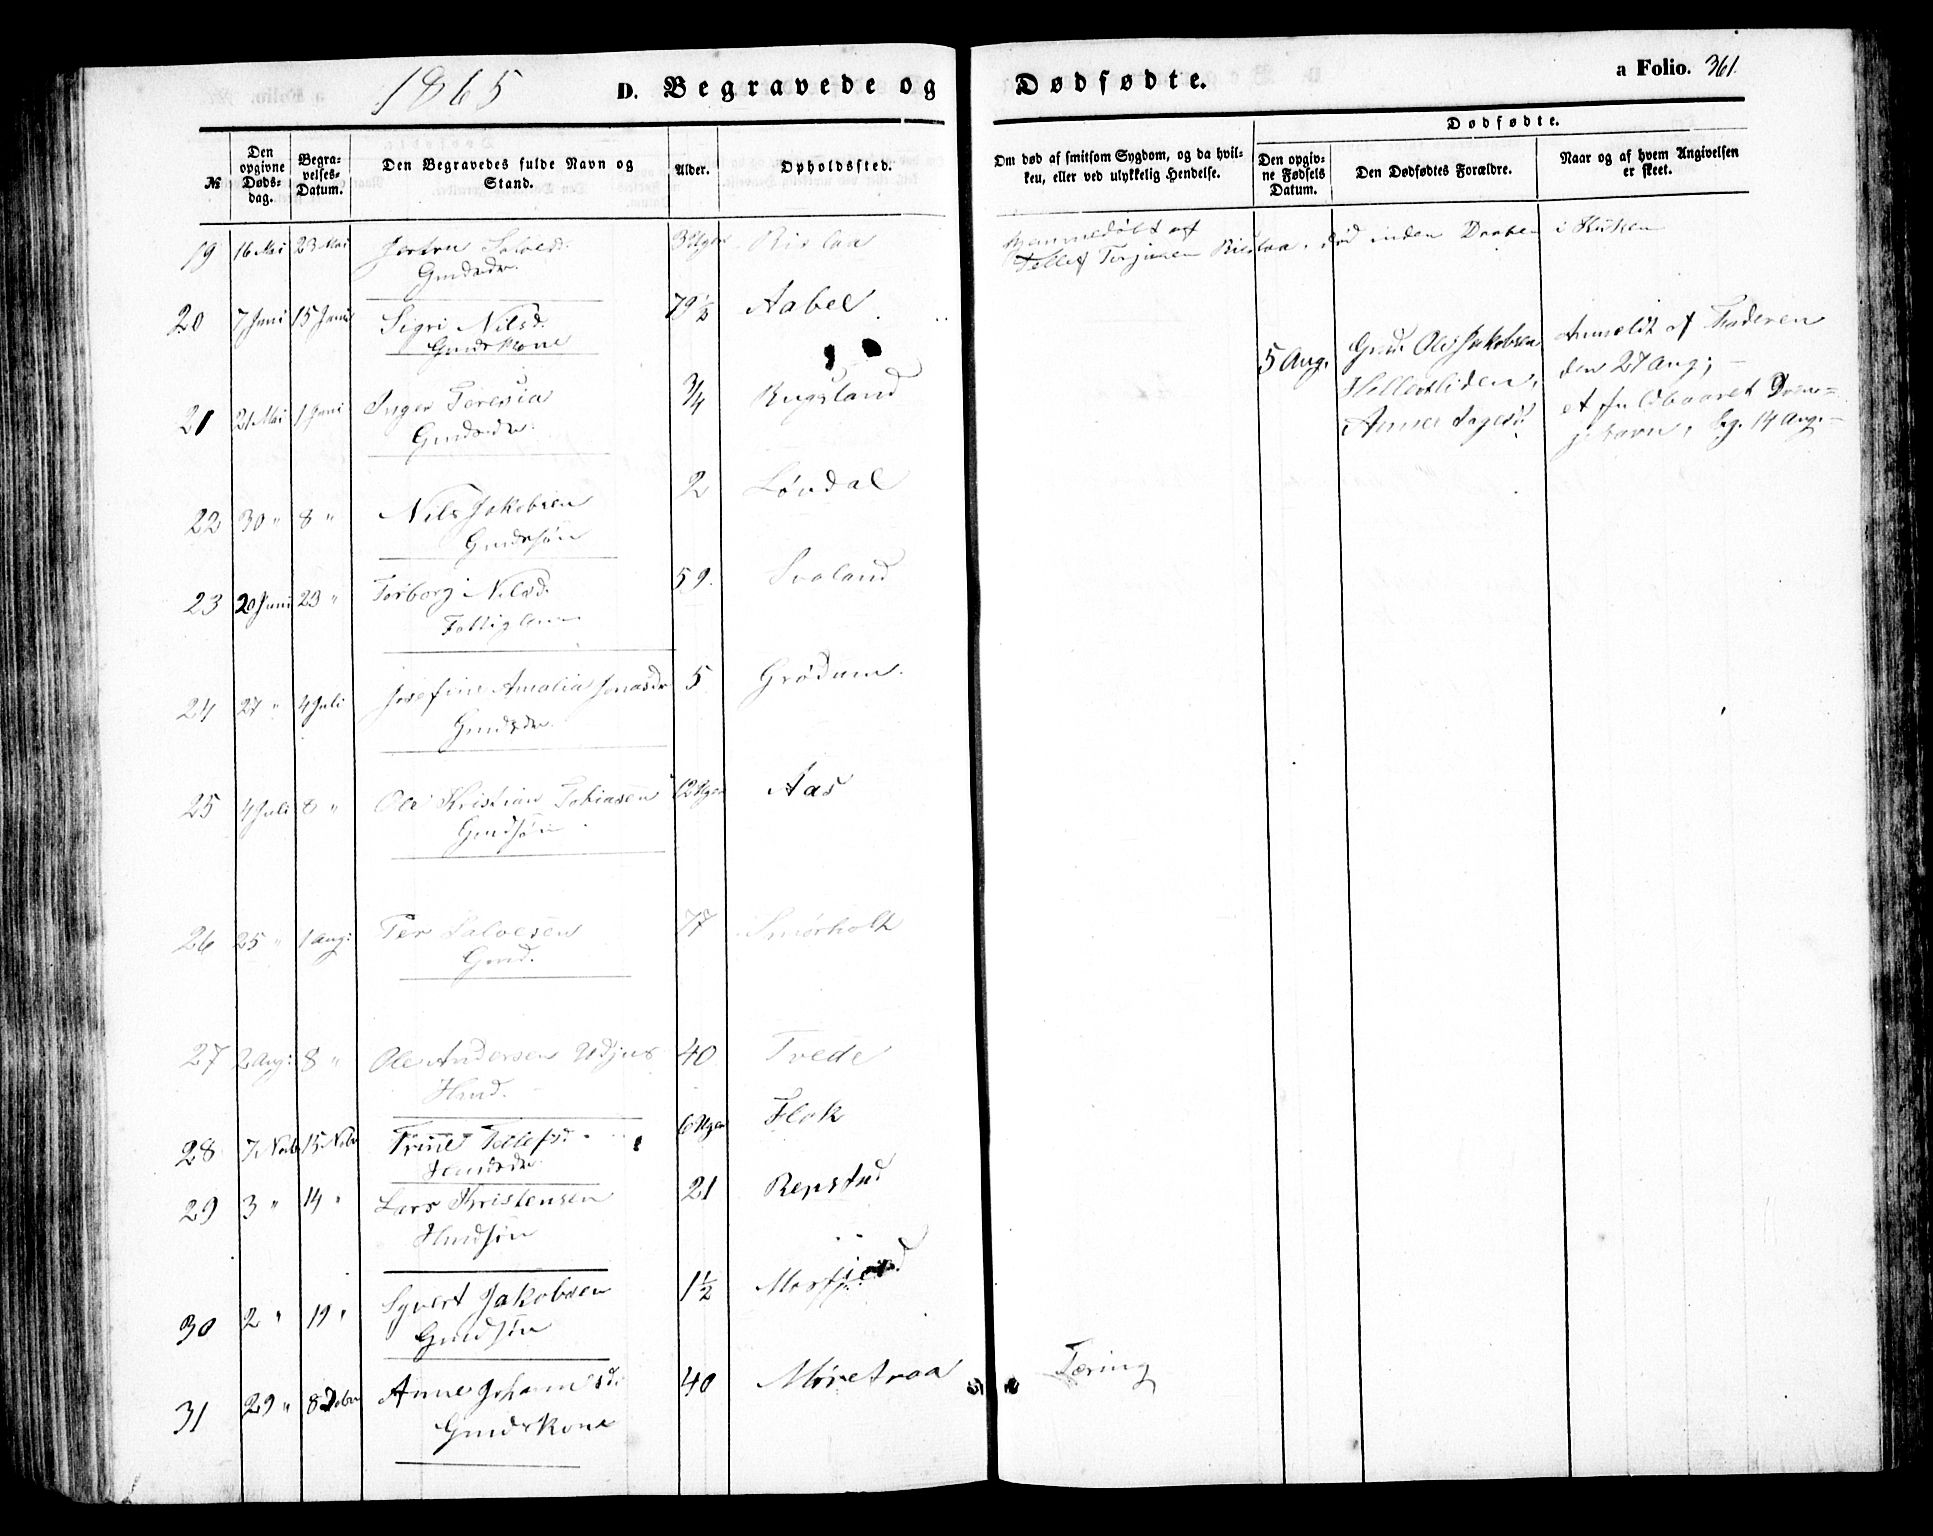 1865 D. Begravede og Dødfødte. a Folio. 361.
№ Den opgivne Døds-dag. Begra-velses-Datum. Den Begravedes fulde Navn og Stand. Alder. Opholdssted. Om død af smitsom Sygdom, og da hvil-ken, eller ved ulykkelig Hendelse. Dødfødte. Den opgiv-ne Fødsels Datum. Den Dødfødtes Forældre. Naar og af hvem Angivelsen er skeet.
19 16 Mai 23 Mai Salvesd. 3 Uger Rislaa Hjemmedøbt af
Gmdsdr. Tellef Terjusen Rislaa, død inden Daaben i Kirken
20 7 Juni 15 Juni Sigri Nilsd. 79½ Aabel
Gmdskone
21 21 Mai 1 Juni Inger Teresia ¾ Rugsland
Gmdsdr.
5 Aug. Gmd. Ole Jakobsen Anmeldt af Faderen
Hellesliden, den 27 Aug;
Anne Aagesd. et fuldbaaret Drenge-
barn, bg. 14 Aug.
22 30 " 8 " Nils Jakobsen 2 Løvdal
Gmdssøn
23 20 Juni 23 " Torborg Nilsd. 59. Svaland
Fattiglem
24 27 " 4 Juli Josefine Amalia Jonasdr 5 Grødum.
Gmdsdr.
25 4 Juli 8 " Ole Kristian Tobiasen 12 Uger Aas
Gmdsøn
26 25 " 1 Aug: Per Salvesen 77 Smørholt
Gmd.
27 2 Aug: 8 " Ole Andersen Udjus 40 Tvede
Hmd.
28 7 Novb 15 Novb Trine Tellefsd. 6 Uger Flak
29 3 " 14 " Lars Kristensen 21 Repstad
Hmdsøn
30 2 " 19 " Syvert Jakobsen 1½
Gmdsøn
31 29 " 8 Debr Anne Johannsd. 40 Møretraa Tæring
Gmdskone